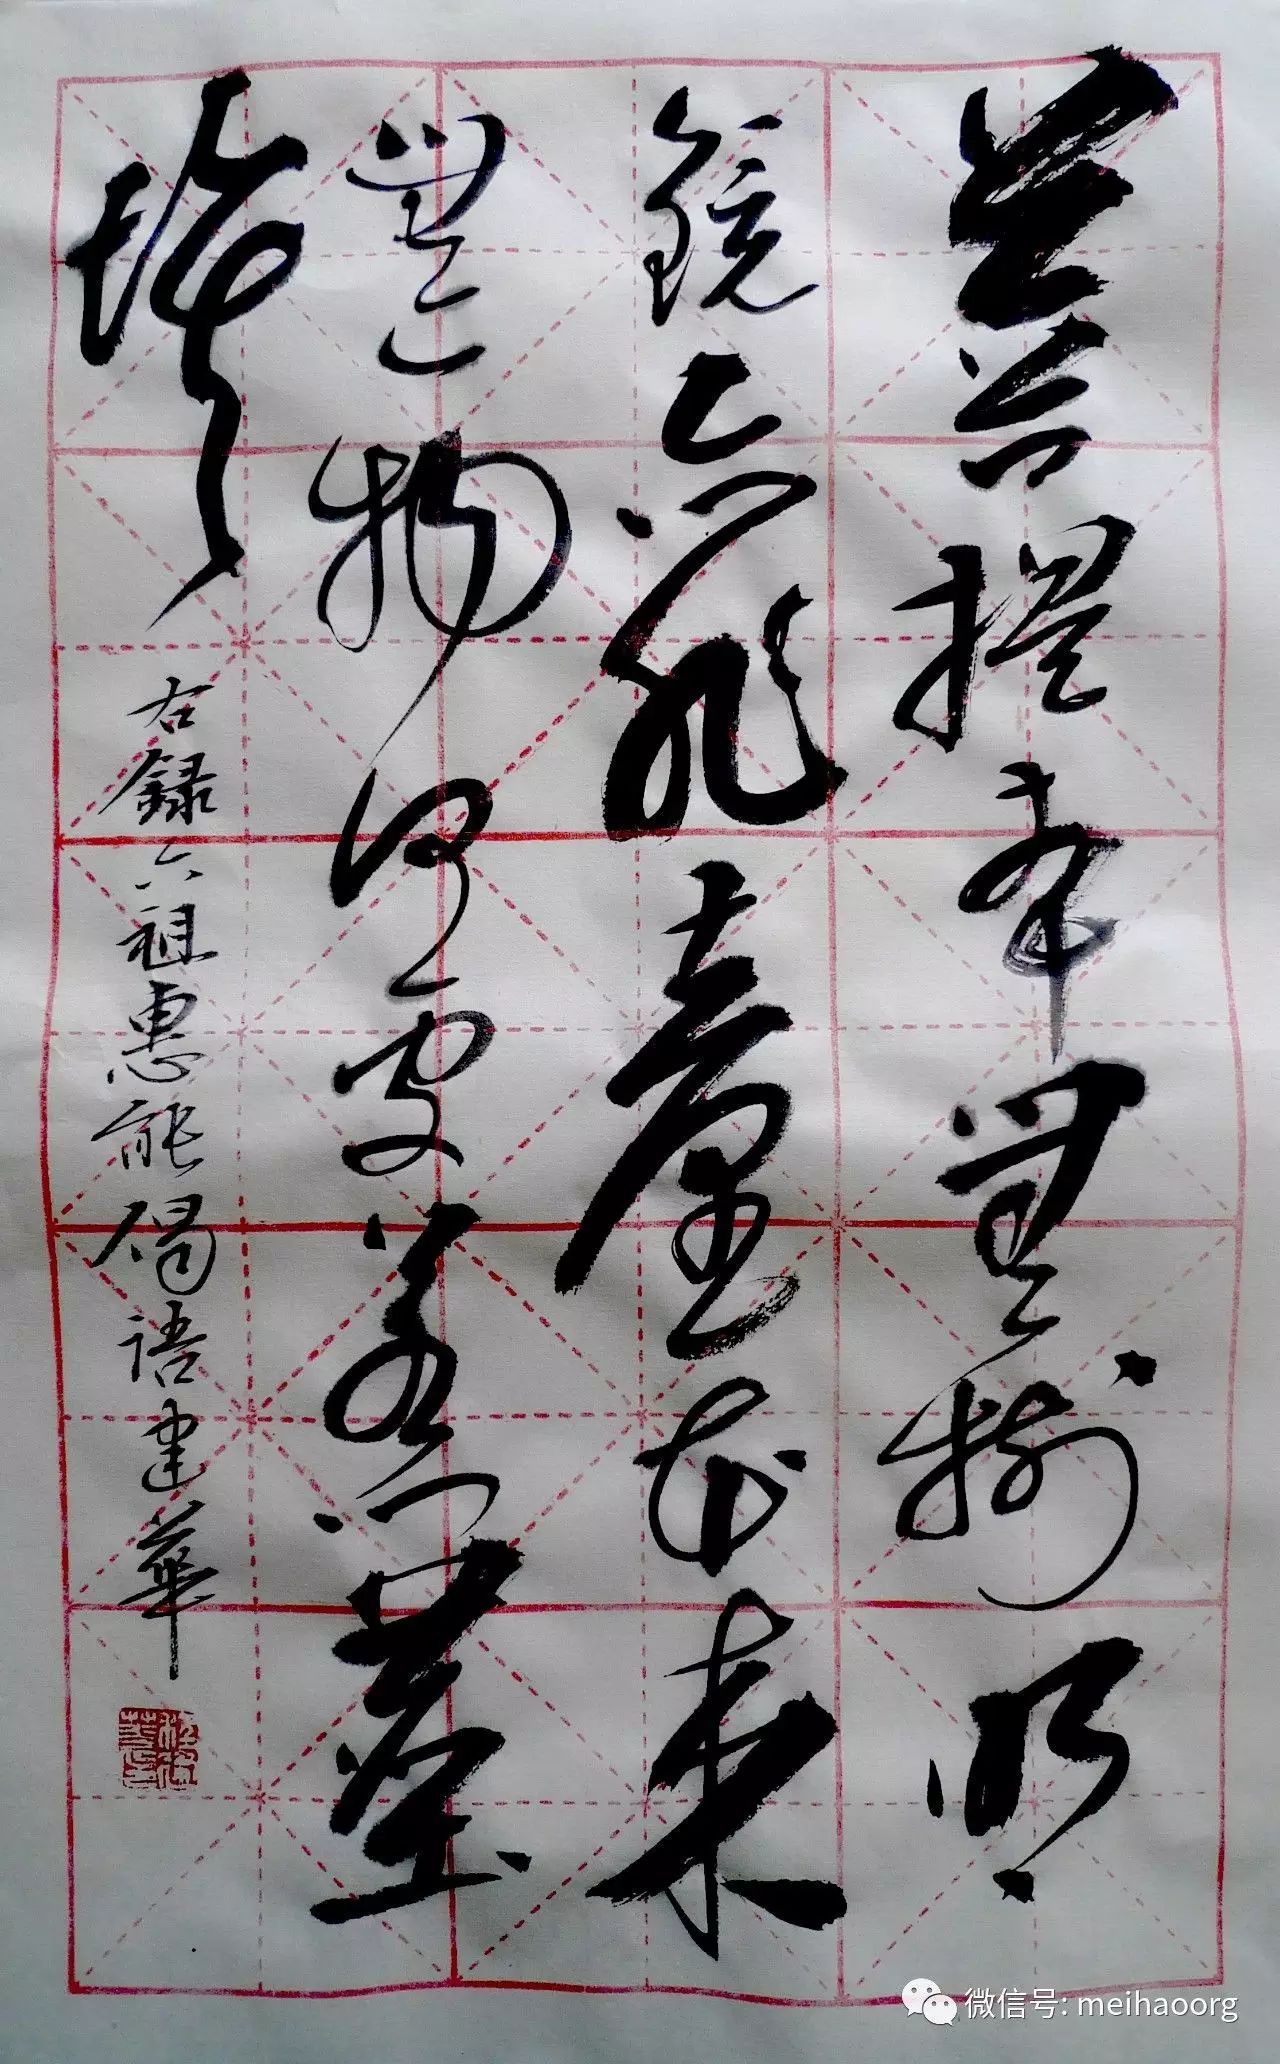 菩提本無樹明
鏡亦非臺本来
無一物何處惹塵
埃
右録六祖惠能偈語建華
微信号: meihaoorg